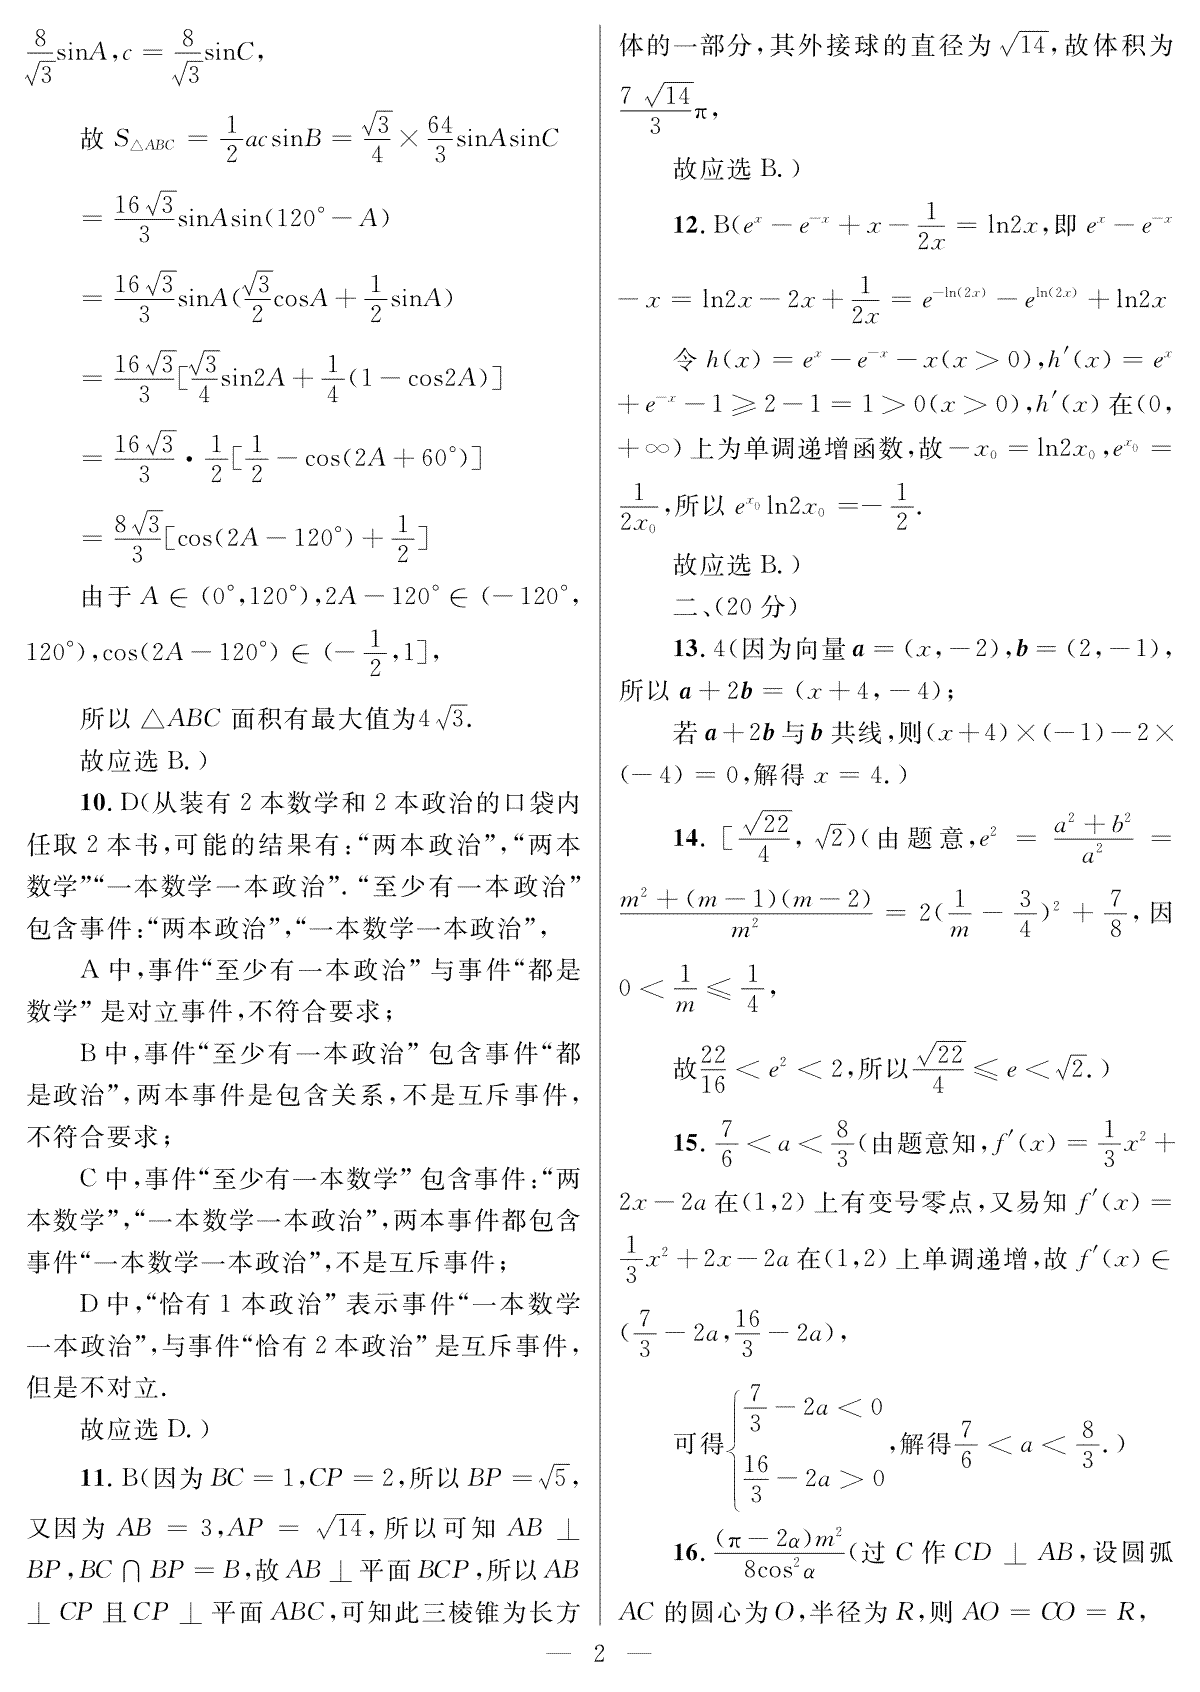 8/√3 sinA,c = 8/√3 sinC,
故 S△ABC = 1/2 acsinB = √3/4 × 64/3 sinAsinC
= 16√3/3 sinAsin(120°－A)
= 16√3/3 sinA(√3/2 cosA＋1/2 sinA)
= 16√3/3 [√3/4 sin2A＋1/4(1－cos2A)]
= 16√3/3 · 1/2[1/2－cos(2A＋60°)]
= 8√3/3 [cos(2A－120°)＋1/2]
由于 A∈(0°,120°),2A－120°∈(－120°,
120°),cos(2A－120°)∈(－1/2,1],
所以 △ABC 面积有最大值为4√3.
故应选 B.)
10. D(从装有 2 本数学和 2 本政治的口袋内
任取 2 本书,可能的结果有:“两本政治”,“两本
数学”“一本数学一本政治”. “至少有一本政治”
包含事件:“两本政治”,“一本数学一本政治”,
A 中,事件“至少有一本政治” 与事件“都是
数学” 是对立事件,不符合要求;
B 中,事件“至少有一本政治” 包含事件“都
是政治”,两本事件是包含关系,不是互斥事件,
不符合要求;
C 中,事件“至少有一本数学” 包含事件:“两
本数学”,“一本数学一本政治”,两本事件都包含
事件“一本数学一本政治”,不是互斥事件;
D 中,“恰有 1 本政治” 表示事件“一本数学
一本政治”,与事件“恰有 2 本政治” 是互斥事件,
但是不对立.
故应选 D.)
11. B(因为 BC = 1,CP = 2,所以 BP = √5,
又因为 AB = 3,AP = √14,所以可知 AB ⊥
BP,BC∩BP = B,故 AB⊥平面 BCP,所以 AB
⊥ CP 且 CP ⊥ 平面 ABC,可知此三棱锥为长方
体的一部分,其外接球的直径为 √14,故体积为
7√14/3 π,
故应选 B.)
12. B(eˣ－e⁻ˣ＋x－1/2x = ln2x,即 eˣ－e⁻ˣ
－x = ln2x－2x＋1/2x = e^(－ln(2x))－e^(ln(2x))＋ln2x
令 h(x) = eˣ－e⁻ˣ－x(x＞0),h′(x) = eˣ
＋e⁻ˣ－1≥2－1 = 1＞0(x＞0),h′(x) 在(0,
＋∞) 上为单调递增函数,故－x₀ = ln2x₀,e^(x₀) =
1/2x₀,所以 e^(x₀)ln2x₀ =－1/2.
故应选 B.)
二、(20 分)
13. 4(因为向量 a = (x,－2),b = (2,－1),
所以 a＋2b = (x＋4,－4);
若 a＋2b 与 b 共线,则(x＋4)×(－1)－2×
(－4) = 0,解得 x = 4.)
14. [√22/4, √2)(由题意,e² = (a²＋b²)/a² =
(m²＋(m－1)(m－2))/m² = 2(1/m－3/4)²＋7/8,因
0＜1/m≤1/4,
故22/16＜e²＜2,所以√22/4≤e＜√2.)
15. 7/6＜a＜8/3(由题意知,f′(x) = 1/3x²＋
2x－2a 在(1,2) 上有变号零点,又易知 f′(x) =
1/3x²＋2x－2a 在(1,2) 上单调递增,故 f′(x)∈
(7/3－2a,16/3－2a),
可得{7/3－2a＜0
16/3－2a＞0,解得7/6＜a＜8/3.)
16. (π－2α)m²/8cos²α(过 C 作 CD ⊥ AB,设圆弧
AC 的圆心为 O,半径为 R,则 AO = CO = R,
— 2 —